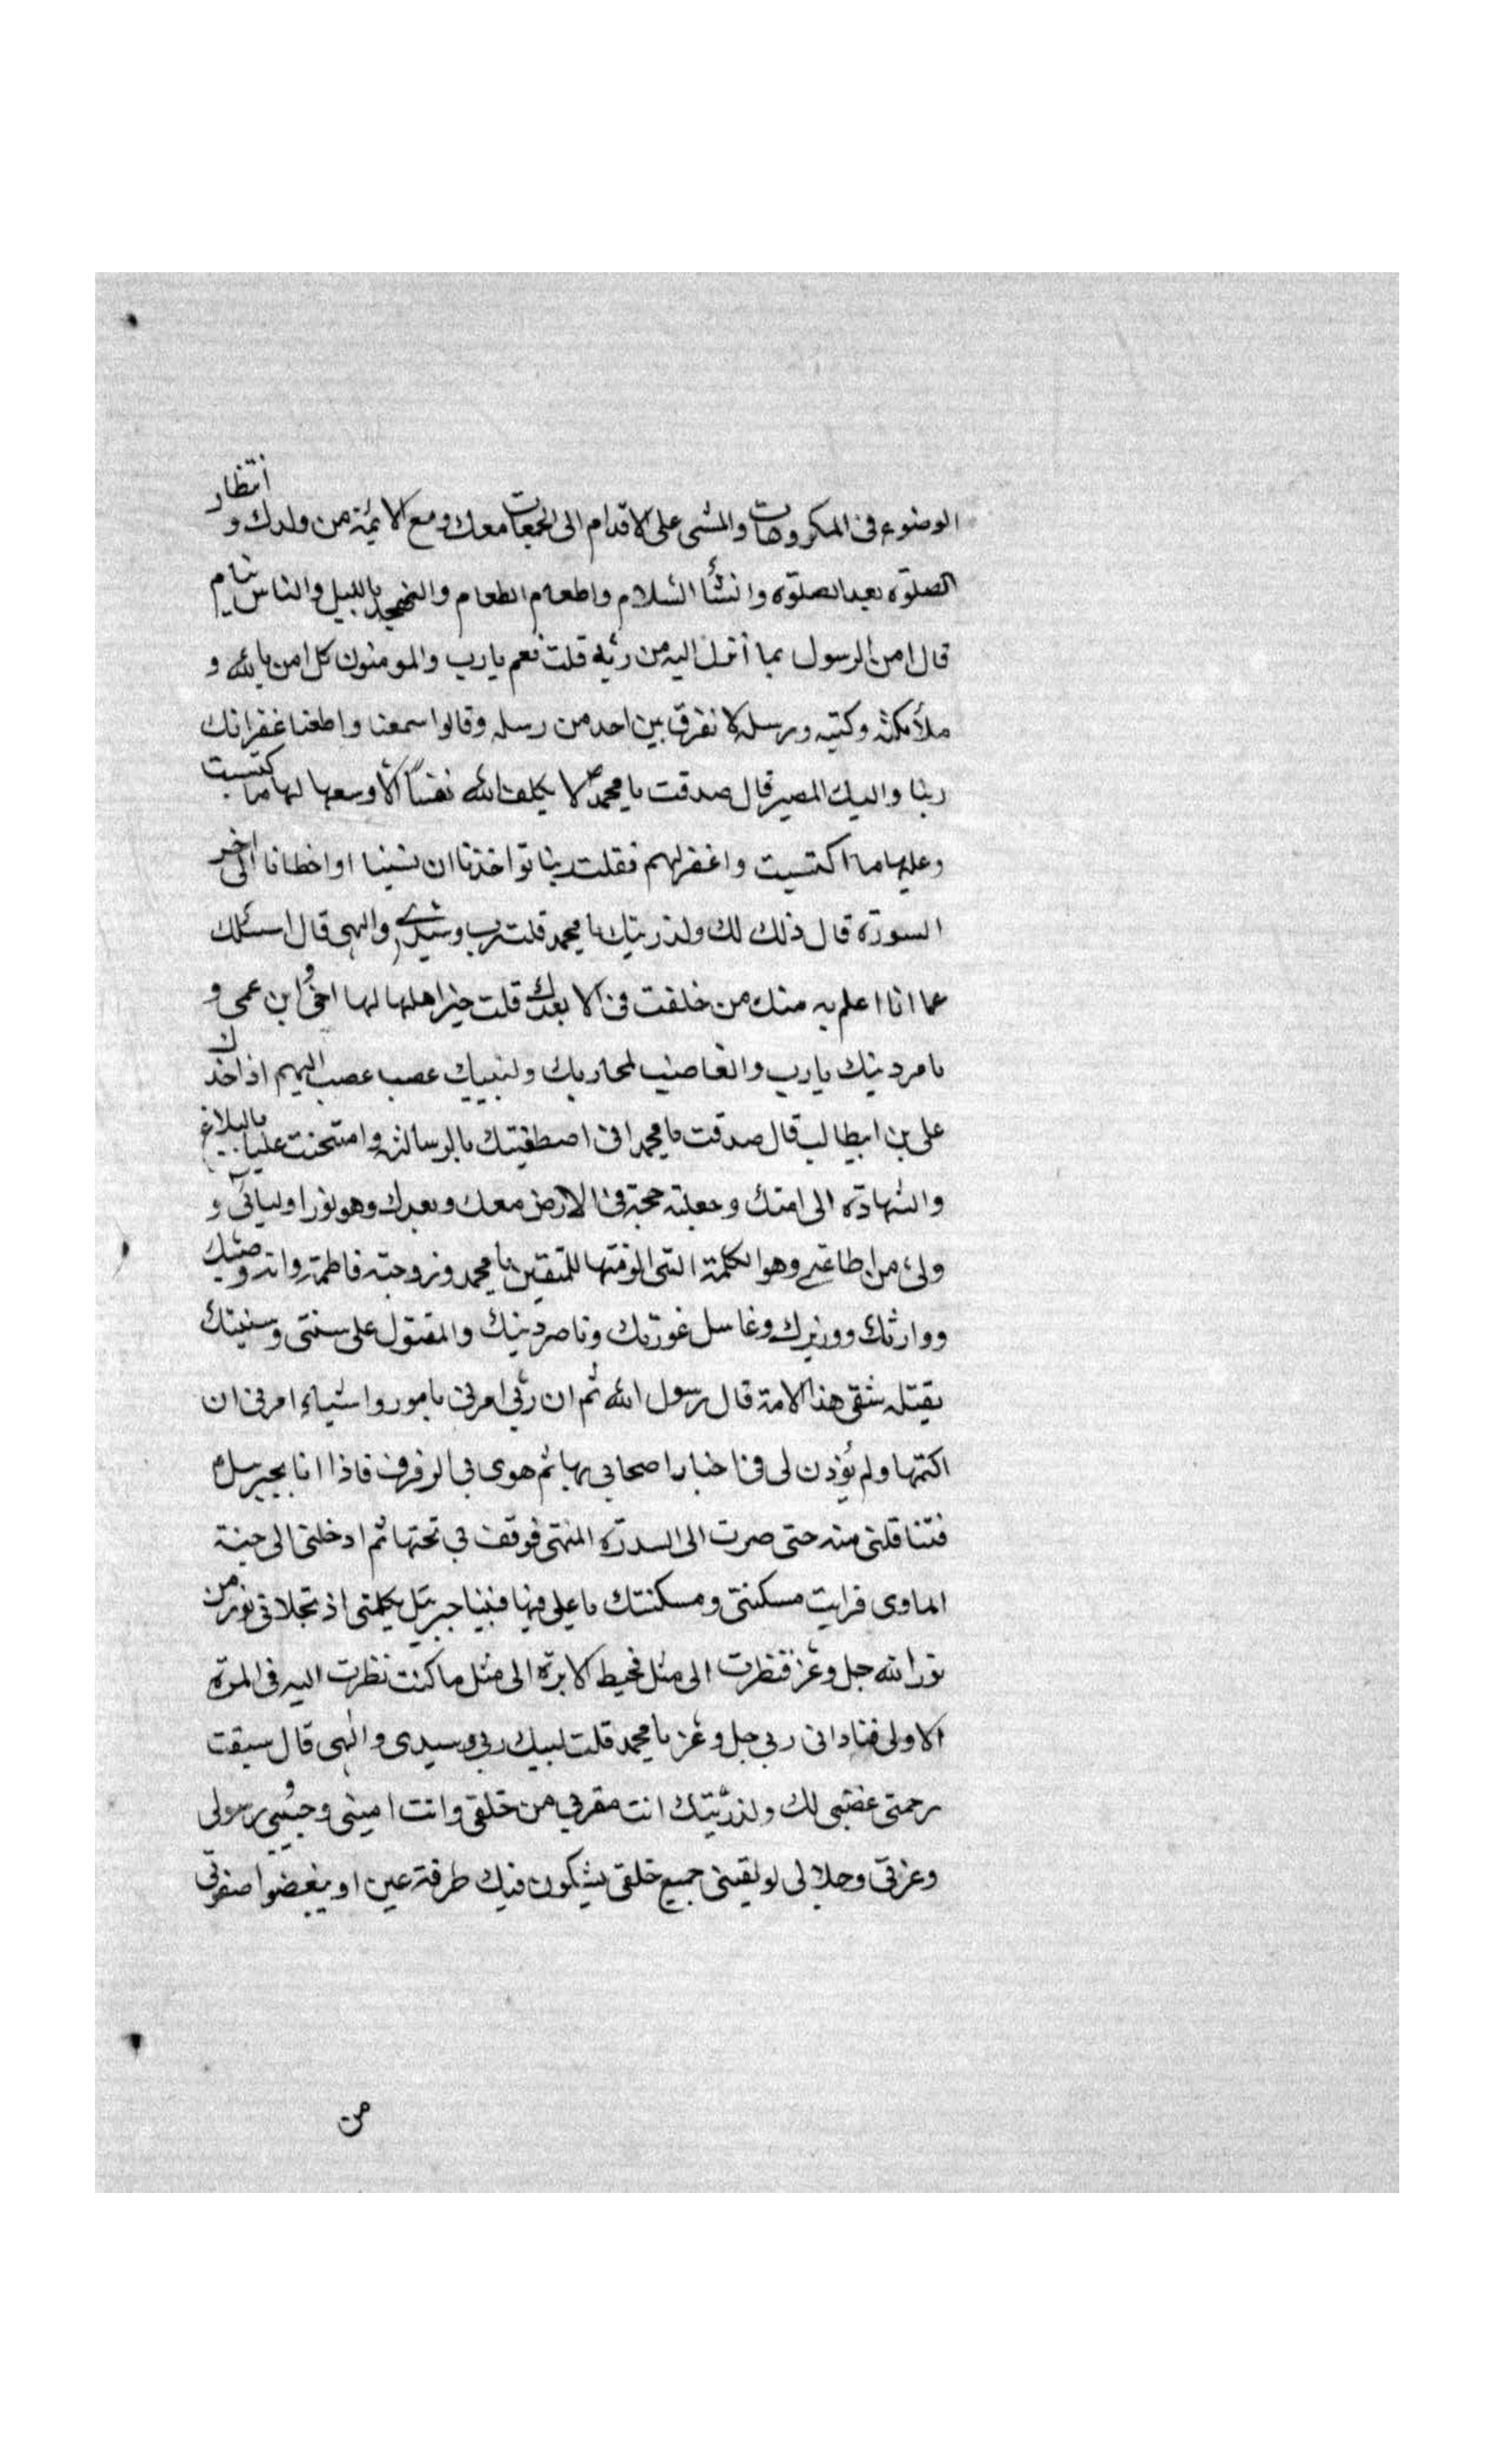 الوضوء فى المكروهات والمشى على الاقدام الى الجمعات معك ومع الايمة من ولدك و انتظار
الصلوة بعد الصلوة وانشأ السلام واطعام الطعام والتهجد بالليل والناس نيام
قال امن الرسول بما أنزل اليه من ربه قلت نعم يارب والمومنون كل امن بالله و
ملأمكته وكتبه ورسله لا نفرق بين احد من رسله وقالوا سمعنا واطعنا غفرانك
ربنا واليك المصير قال صدقت يا محمد لا يكلف الله نفسًا الا وسعها لها ما كتسبت
وعليها ما اكتسبت واغفر لهم فقلت ربنا تواخذنا ان نسينا او اخطانا الى اخر
السورة قال ذلك لك ولذريتك يا محمد قلت رب وسيدى والهى قال اسئلك
عما انا اعلم به منك من خلفت فى الا بعدك قلت خير اهلها لها اخى و ابن عمى و
نا مر دينك يارب والغاضب لمحاربك ولنبيك عصب عصب اليهم اذ اخذك
على بن ابيطالب قال صدقت يا محمد انى اصطفيتك بالرسالة وامتحنت عليا بالبلاغ
والشهادة الى امتك وجعلته حجة فى الارض معك وبعدك وهو نور اوليائى و
ولى من اطاعنى وهو الكلمة التى الزمتها للمتقين يا محمد وزوجته فاطمة وانه وصيك
ووارثك ووزيرك وغاسل عورتك وناصر دينك والمقتول على سنتى وسنتك
يقتله شقى هذا الامة قال رسول الله ثم ان ربى امرنى بامور واشياء امرنى ان
اكتمها ولم يؤذن لى فى اخبار اصحابى بها ثم هوى بى الرفرف فاذا انا بجبرسل
فتناقلنى منه حتى صرت الى السدرة المنتهى فوقف بى تحتها ثم ادخلنى الى جنة
الماوى فرايت مسكنتى ومسكنتك يا على فيها فبينا جبرئيل يكلمنى اذ تجلانى نور من
نور الله جل وعز فنظرت الى مثل مخيط الابرة الى مثل ما كنت نظرت اليه فى المرة
الاولى فنادانى ربى جل وعز يا محمد قلت لبيك ربى وسيدى والهى قال سبقت
رحمتى غضبى لك ولذريتك انت مقربى من خلقى وانت امينى وحبيبى و رسولى
وعزتى وجلالى لو لقينى جميع خلقى يشكون فيك طرفة عين او يبغضوا صفوتى
من